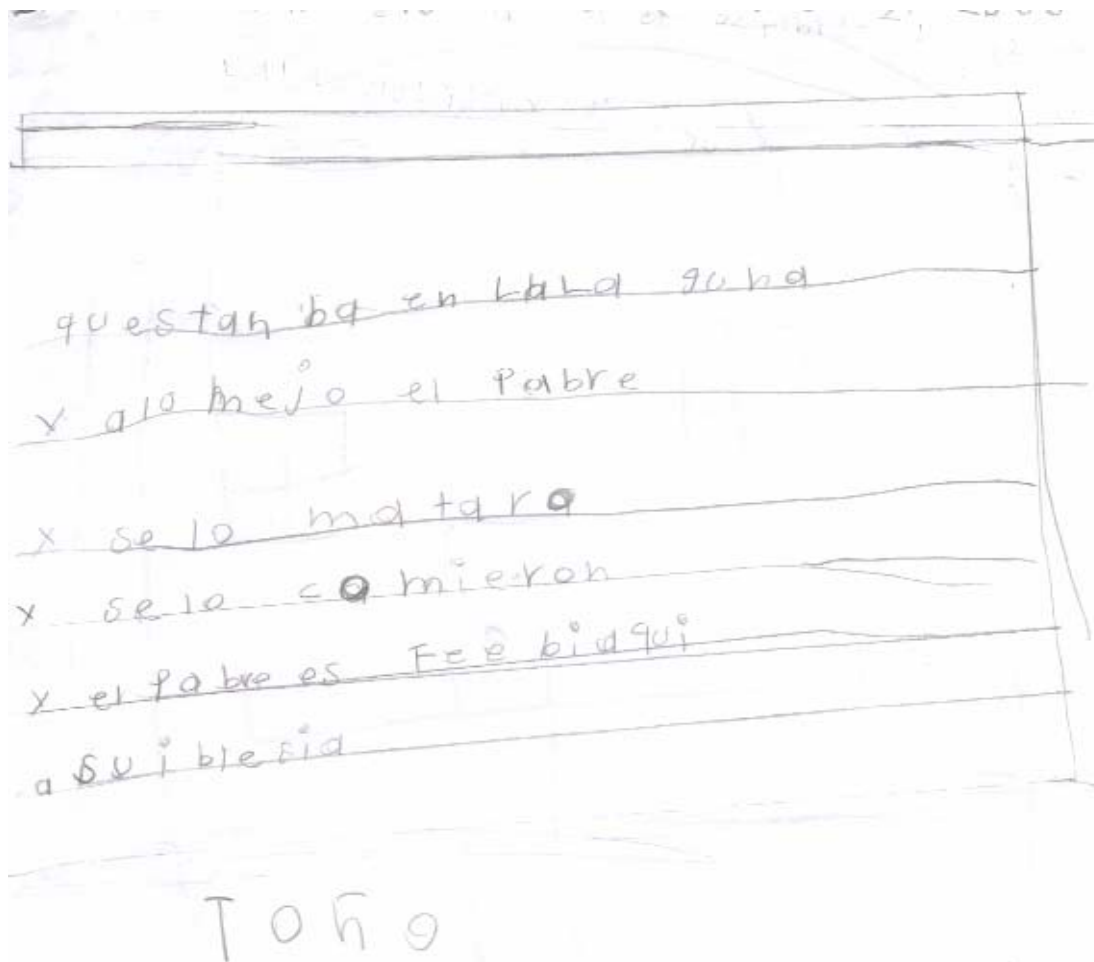 questanba en LaLa guna
y alo mejo el Pabre
y se lo mataro
y selo comieron
y el Pabre es Fee biaqui
a suiblesia
Toño